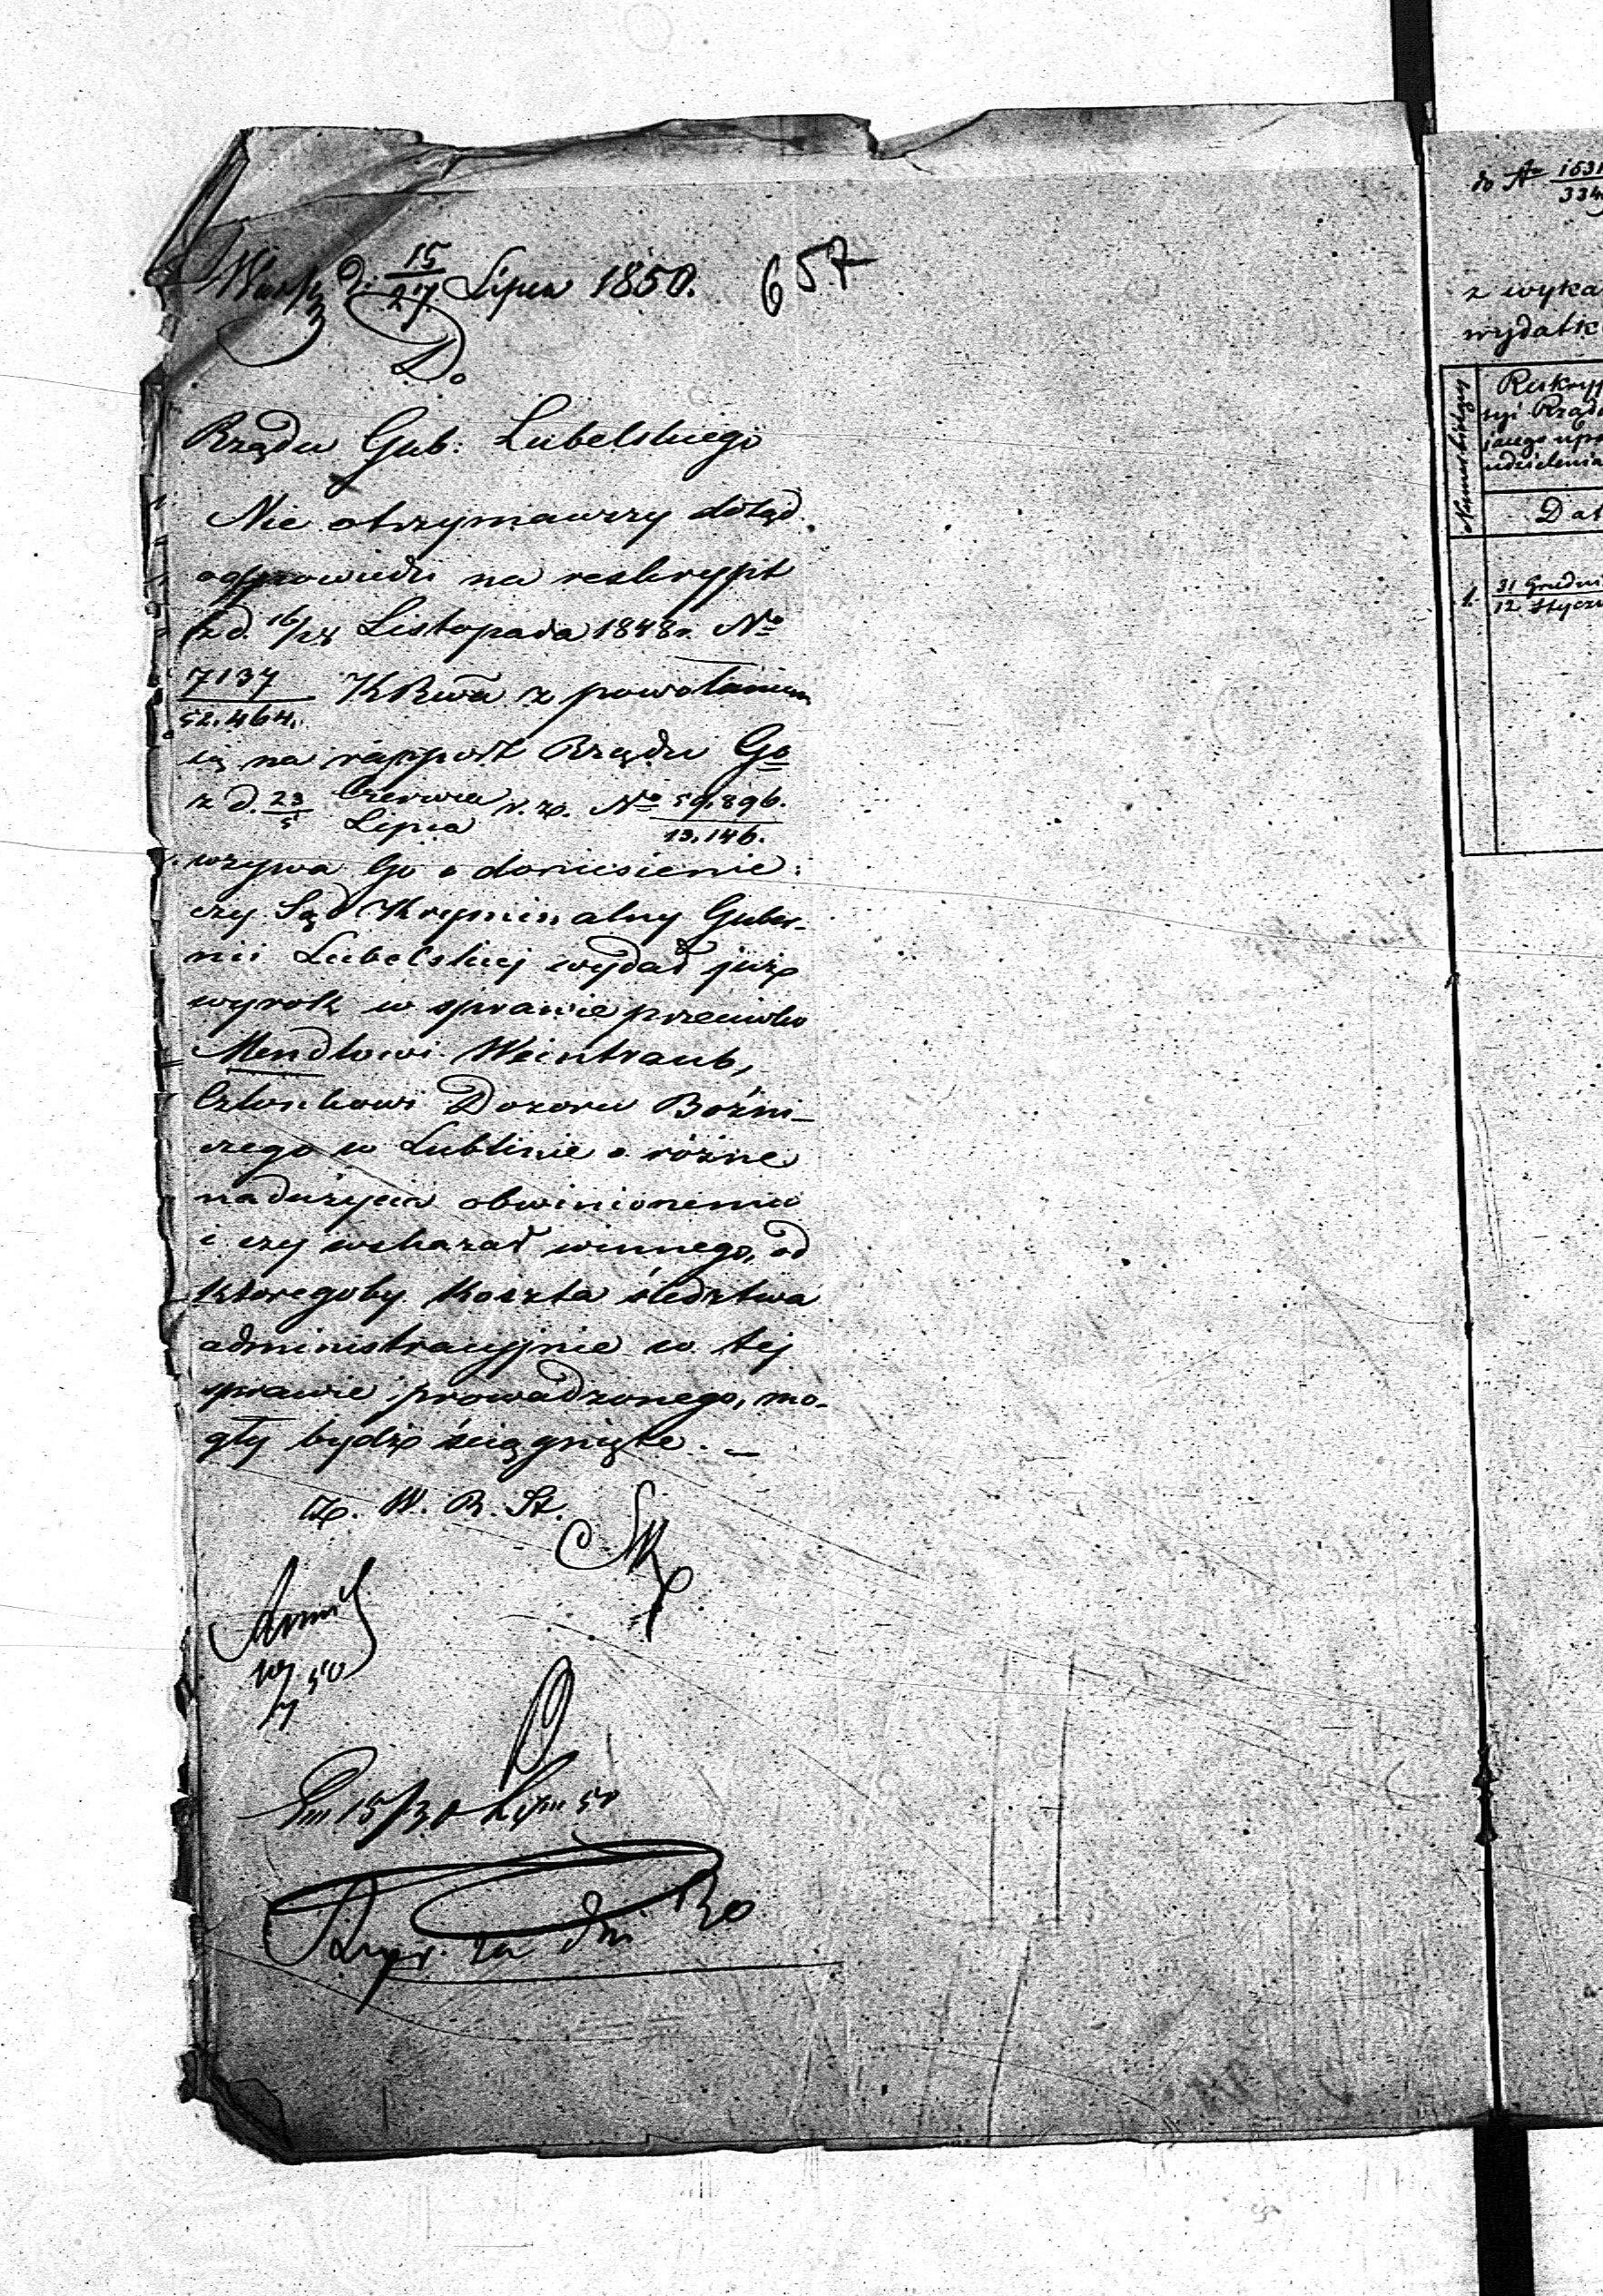 Warsz d. 15/27 Lipca 1850. 657
Do
Rządu Gub: Lubelskiego
Nie otrzymawszy dotąd
odpowiedzi na reskrypt
z d. 16/28 Listopada 1848 r. No
7137/52.464. KRwa z powołaniem
się na rapport Rządu Go
z d. 23 Czerwca/5 Lipca r. z. No 59.896./13.146.
wzywa Go o doniesienie:
czy Sąd Kryminalny Guber-
nii Lubelskiej wydał już
wyrok w sprawie przeciwko
Mendlowi Weintraub,
Członkowi Dozoru Bożni-
czego w Lublinie o różne
nadużycia obwinionemu
i czy wskazał winnego, od
któregoby koszta śledztwa
administracyjnie w tej
sprawie prowadzonego, mo-
gły bydź ściągnięte. —
z. W. R. St.
50
7
15/30 Lipca 50
za dni
do No 1531
334
z wyka
wydatk
Numer bieżący
Reskryp
syi Rząd
jącego upo
udzielenia
Dat
1. 31 Grudni
12 Stycz